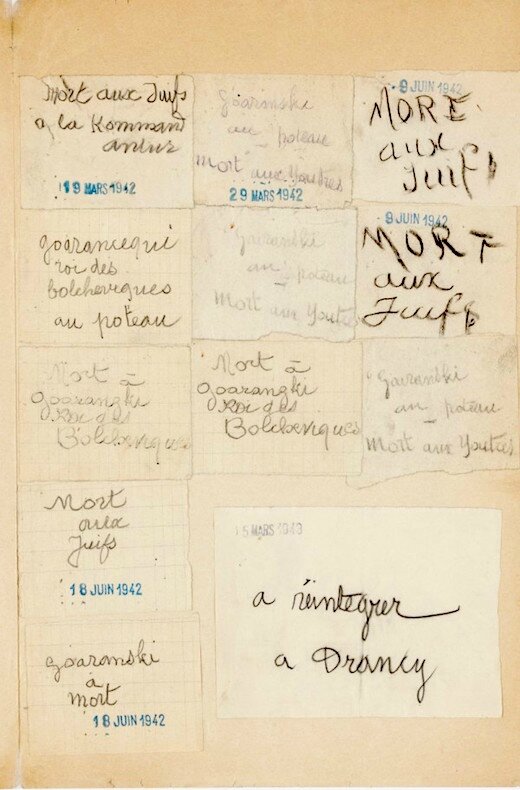 Mort aux Juifs
a la Kommand
antur
19 MARS 1942
goaranski
au poteau
Mort aux Youtres
29 MARS 1942
9 JUIN 1942
MORT
aux
Juifs
goarancequi
roi des
bolcheviques
au poteau
goaranski
au poteau
Mort aux Youtres
9 JUIN 1942
MORT
aux
Juifs
Mort à
goarangki
Roi des
Bolcheviques
Mort à
goarangki
Roi des
Bolcheviques
goaranski
au poteau
Mort aux Youtres
Mort
aux
Juifs
18 JUIN 1942
MARS
a réintegrer
a Drancy
goaranski
à
mort
18 JUIN 1942